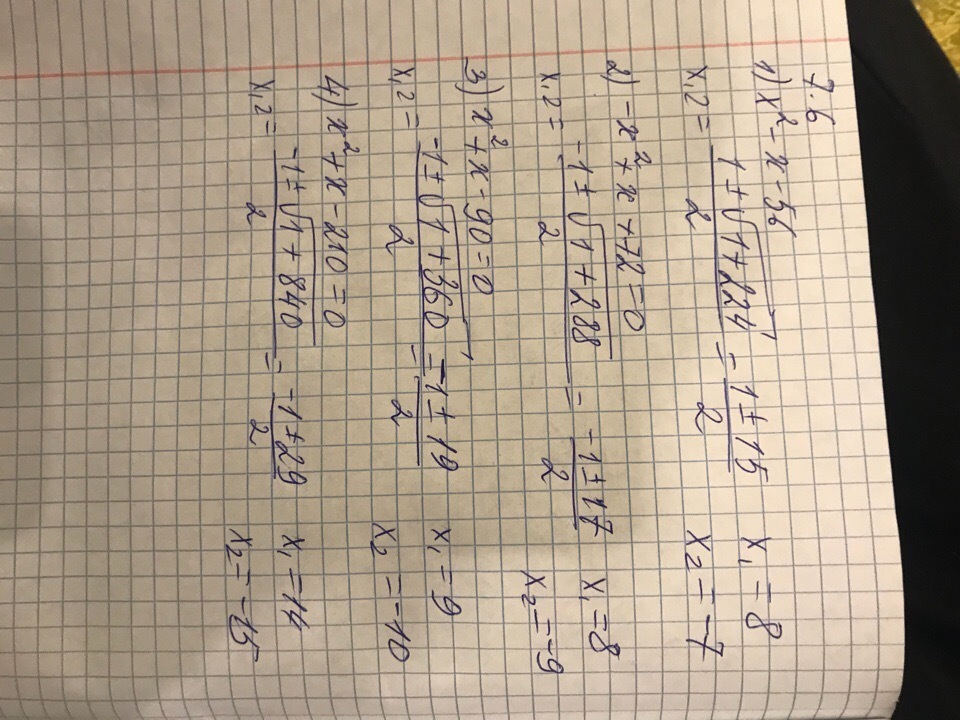 7.6
1) x² - x - 56
x₁,₂ = (1 ± √(1 + 224))/2 = (1 ± 15)/2  x₁ = 8
x₂ = -7
2) -x² + x + 72 = 0
x₁,₂ = (-1 ± √(1 + 288))/2 = (-1 ± 17)/2  x₁ = 8
x₂ = -9
3) x² + x - 90 = 0
x₁,₂ = (-1 ± √(1 + 360))/2 = (-1 ± 19)/2  x₁ = 9
x₂ = -10
4) x² + x - 210 = 0
x₁,₂ = (-1 ± √(1 + 840))/2 = (-1 ± 29)/2  x₁ = 14
x₂ = -15